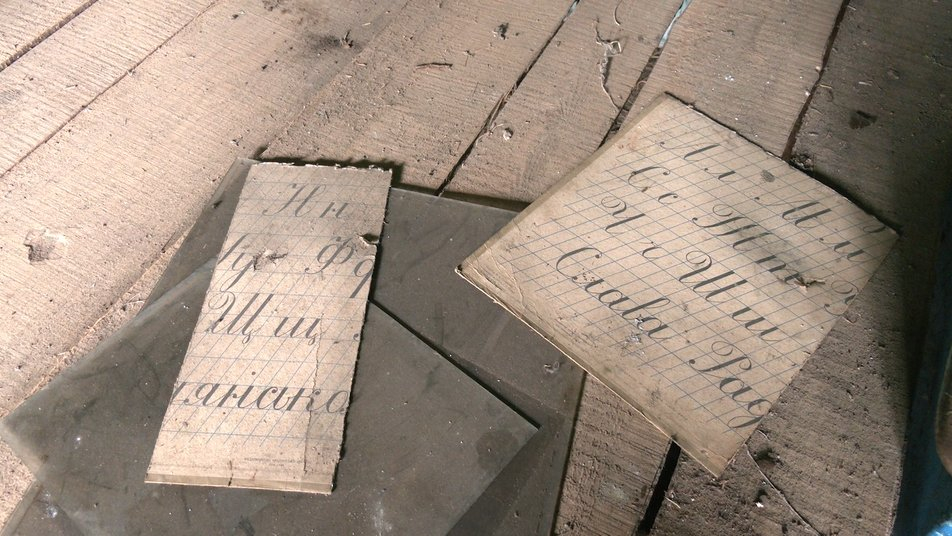 Н н
у Ф ф
Щ щ
янсько
л М м
С с Т т
Ч ч Ш ш
Слава Рад